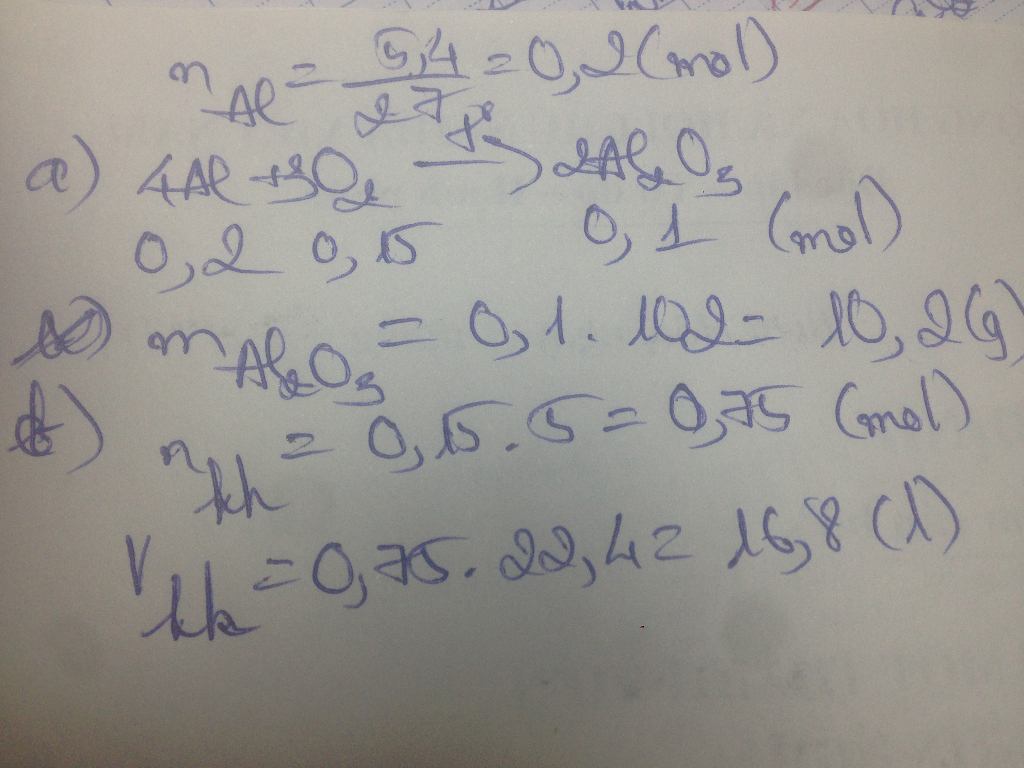 n_Al = 5,4/27 = 0,2 (mol)
a) 4Al + 3O₂ —t°→ 2Al₂O₃
0,2 0,15 0,1 (mol)
m_Al₂O₃ = 0,1 . 102 = 10,2 (g)
b) n_kk = 0,15 . 5 = 0,75 (mol)
V_kk = 0,75 . 22,4 = 16,8 (l)